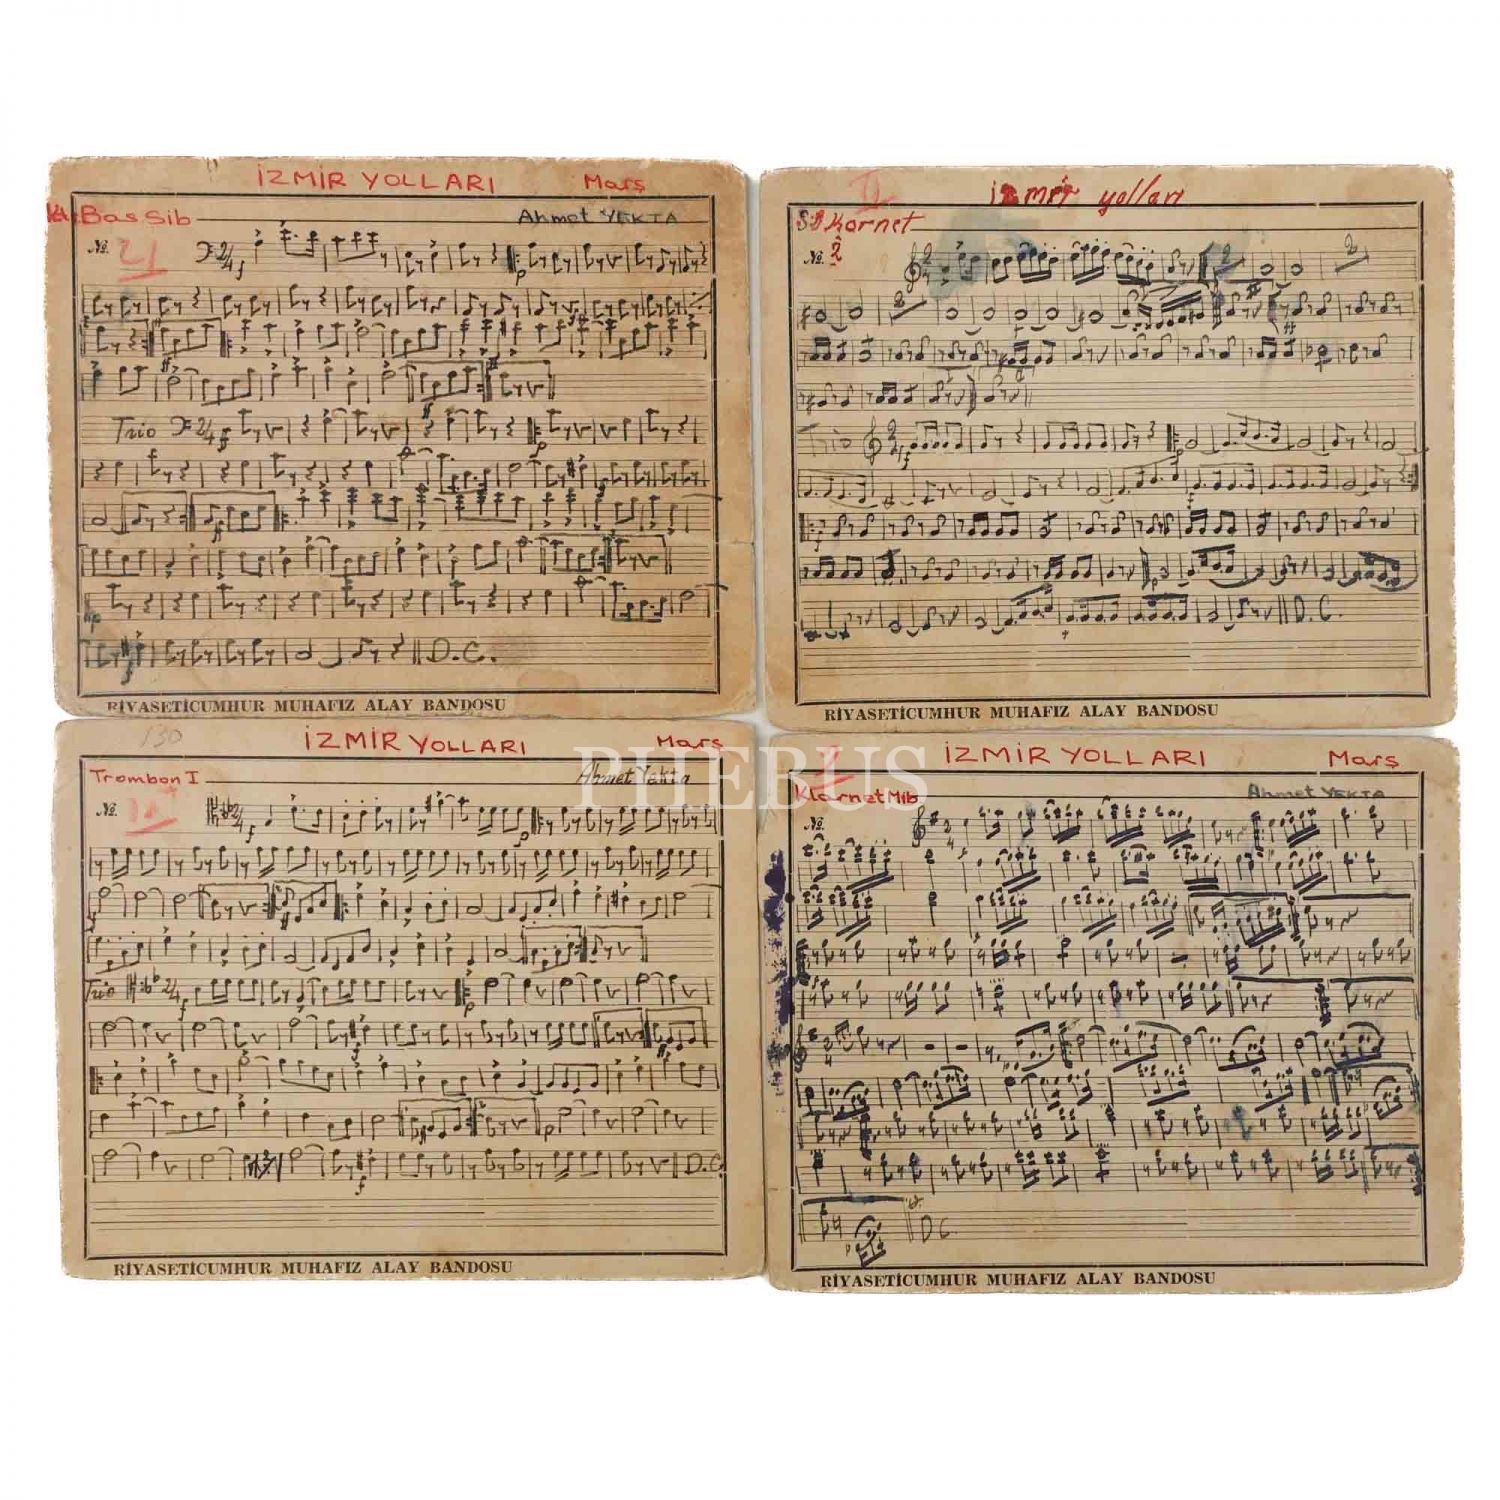 İZMİR YOLLARI Marş
Kt. Bas Sib
Ahmet YEKTA
No. 21
f
p
Trio f
p
D.C.
RİYASETİCUMHUR MUHAFIZ ALAY BANDOSU
II İzmir yolları
SiB Kornet
No. 2
2 2
2
Trio f
p
D.C.
RİYASETİCUMHUR MUHAFIZ ALAY BANDOSU
130
İZMİR YOLLARI Marş
Trombon I
Ahmet Yekta
No.
f p
Trio f p
D.C.
RİYASETİCUMHUR MUHAFIZ ALAY BANDOSU
İZMİR YOLLARI Marş
Klarnet Mib
Ahmet YEKTA
No.
D.C.
RİYASETİCUMHUR MUHAFIZ ALAY BANDOSU
PHEBUS